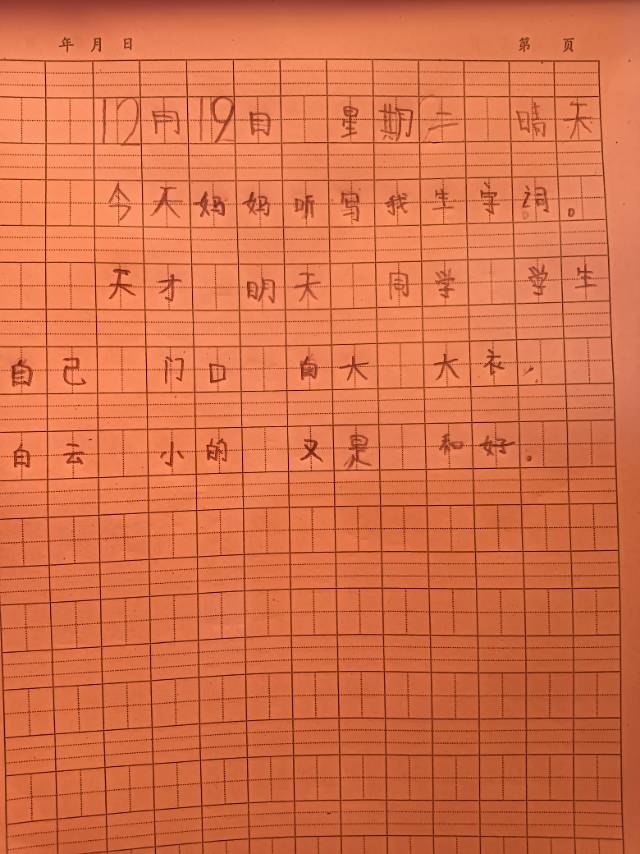 年 月 日 第 页
12月19日 星期二 晴天
今天妈妈听写我生字词。
天才 明天 同学 学生
自己 门口 白大 大衣，
白云 小的 又是 和好。